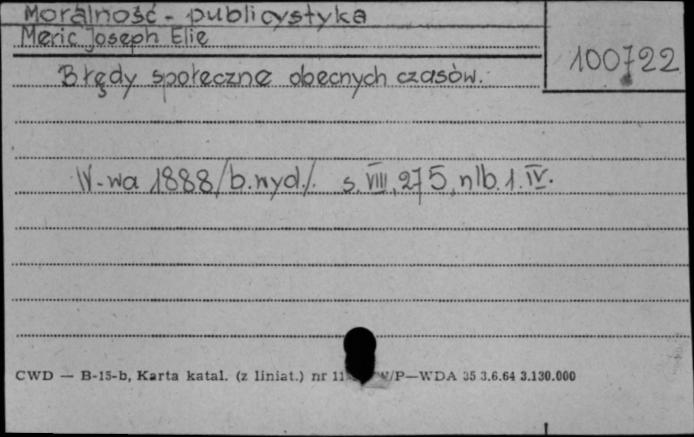 Moralność - publicystyka
Meric Joseph Elie
100722
Błędy społeczne obecnych czasów.
W-wa 1888/b.wyd./. s. VIII, 275, nlb. 1. IV.
CWD — B-15-b, Karta katal. (z liniat.) nr 11 W/P—WDA 35 3.6.64 3.130.000